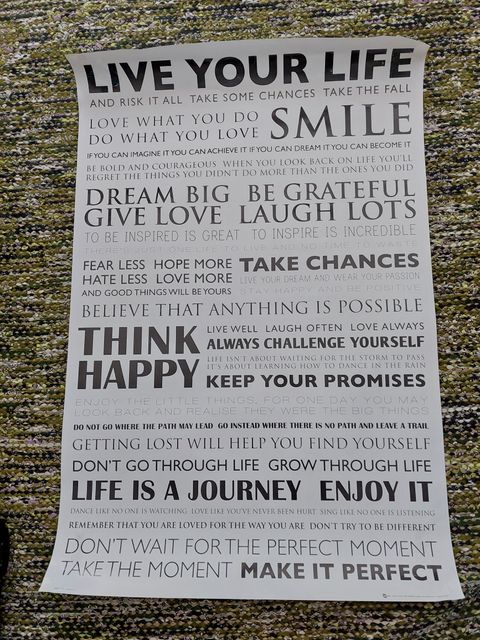 LIVE YOUR LIFE
AND RISK IT ALL TAKE SOME CHANCES TAKE THE FALL
LOVE WHAT YOU DO
DO WHAT YOU LOVE
SMILE
IF YOU CAN IMAGINE IT YOU CAN ACHIEVE IT IF YOU CAN DREAM IT YOU CAN BECOME IT
BE BOLD AND COURAGEOUS WHEN YOU LOOK BACK ON LIFE YOU'LL
REGRET THE THINGS YOU DIDN'T DO MORE THAN THE ONES YOU DID
DREAM BIG BE GRATEFUL
GIVE LOVE LAUGH LOTS
TO BE INSPIRED IS GREAT TO INSPIRE IS INCREDIBLE
THERE'S JUST ONE LIFE TO LIVE AND NO TIME TO WASTE
FEAR LESS HOPE MORE
HATE LESS LOVE MORE
AND GOOD THINGS WILL BE YOURS
TAKE CHANCES
LIVE YOUR DREAM AND WEAR YOUR PASSION
STAY HAPPY AND BE POSITIVE
BELIEVE THAT ANYTHING IS POSSIBLE
THINK
HAPPY
LIVE WELL LAUGH OFTEN LOVE ALWAYS
ALWAYS CHALLENGE YOURSELF
LIFE ISN'T ABOUT WAITING FOR THE STORM TO PASS
IT'S ABOUT LEARNING HOW TO DANCE IN THE RAIN
KEEP YOUR PROMISES
ENJOY THE LITTLE THINGS, FOR ONE DAY YOU MAY
LOOK BACK AND REALISE THEY WERE THE BIG THINGS
DO NOT GO WHERE THE PATH MAY LEAD GO INSTEAD WHERE THERE IS NO PATH AND LEAVE A TRAIL
GETTING LOST WILL HELP YOU FIND YOURSELF
DON'T GO THROUGH LIFE GROW THROUGH LIFE
LIFE IS A JOURNEY ENJOY IT
DANCE LIKE NO ONE IS WATCHING LOVE LIKE YOU'VE NEVER BEEN HURT SING LIKE NO ONE IS LISTENING
REMEMBER THAT YOU ARE LOVED FOR THE WAY YOU ARE DON'T TRY TO BE DIFFERENT
DON'T WAIT FOR THE PERFECT MOMENT
TAKE THE MOMENT MAKE IT PERFECT